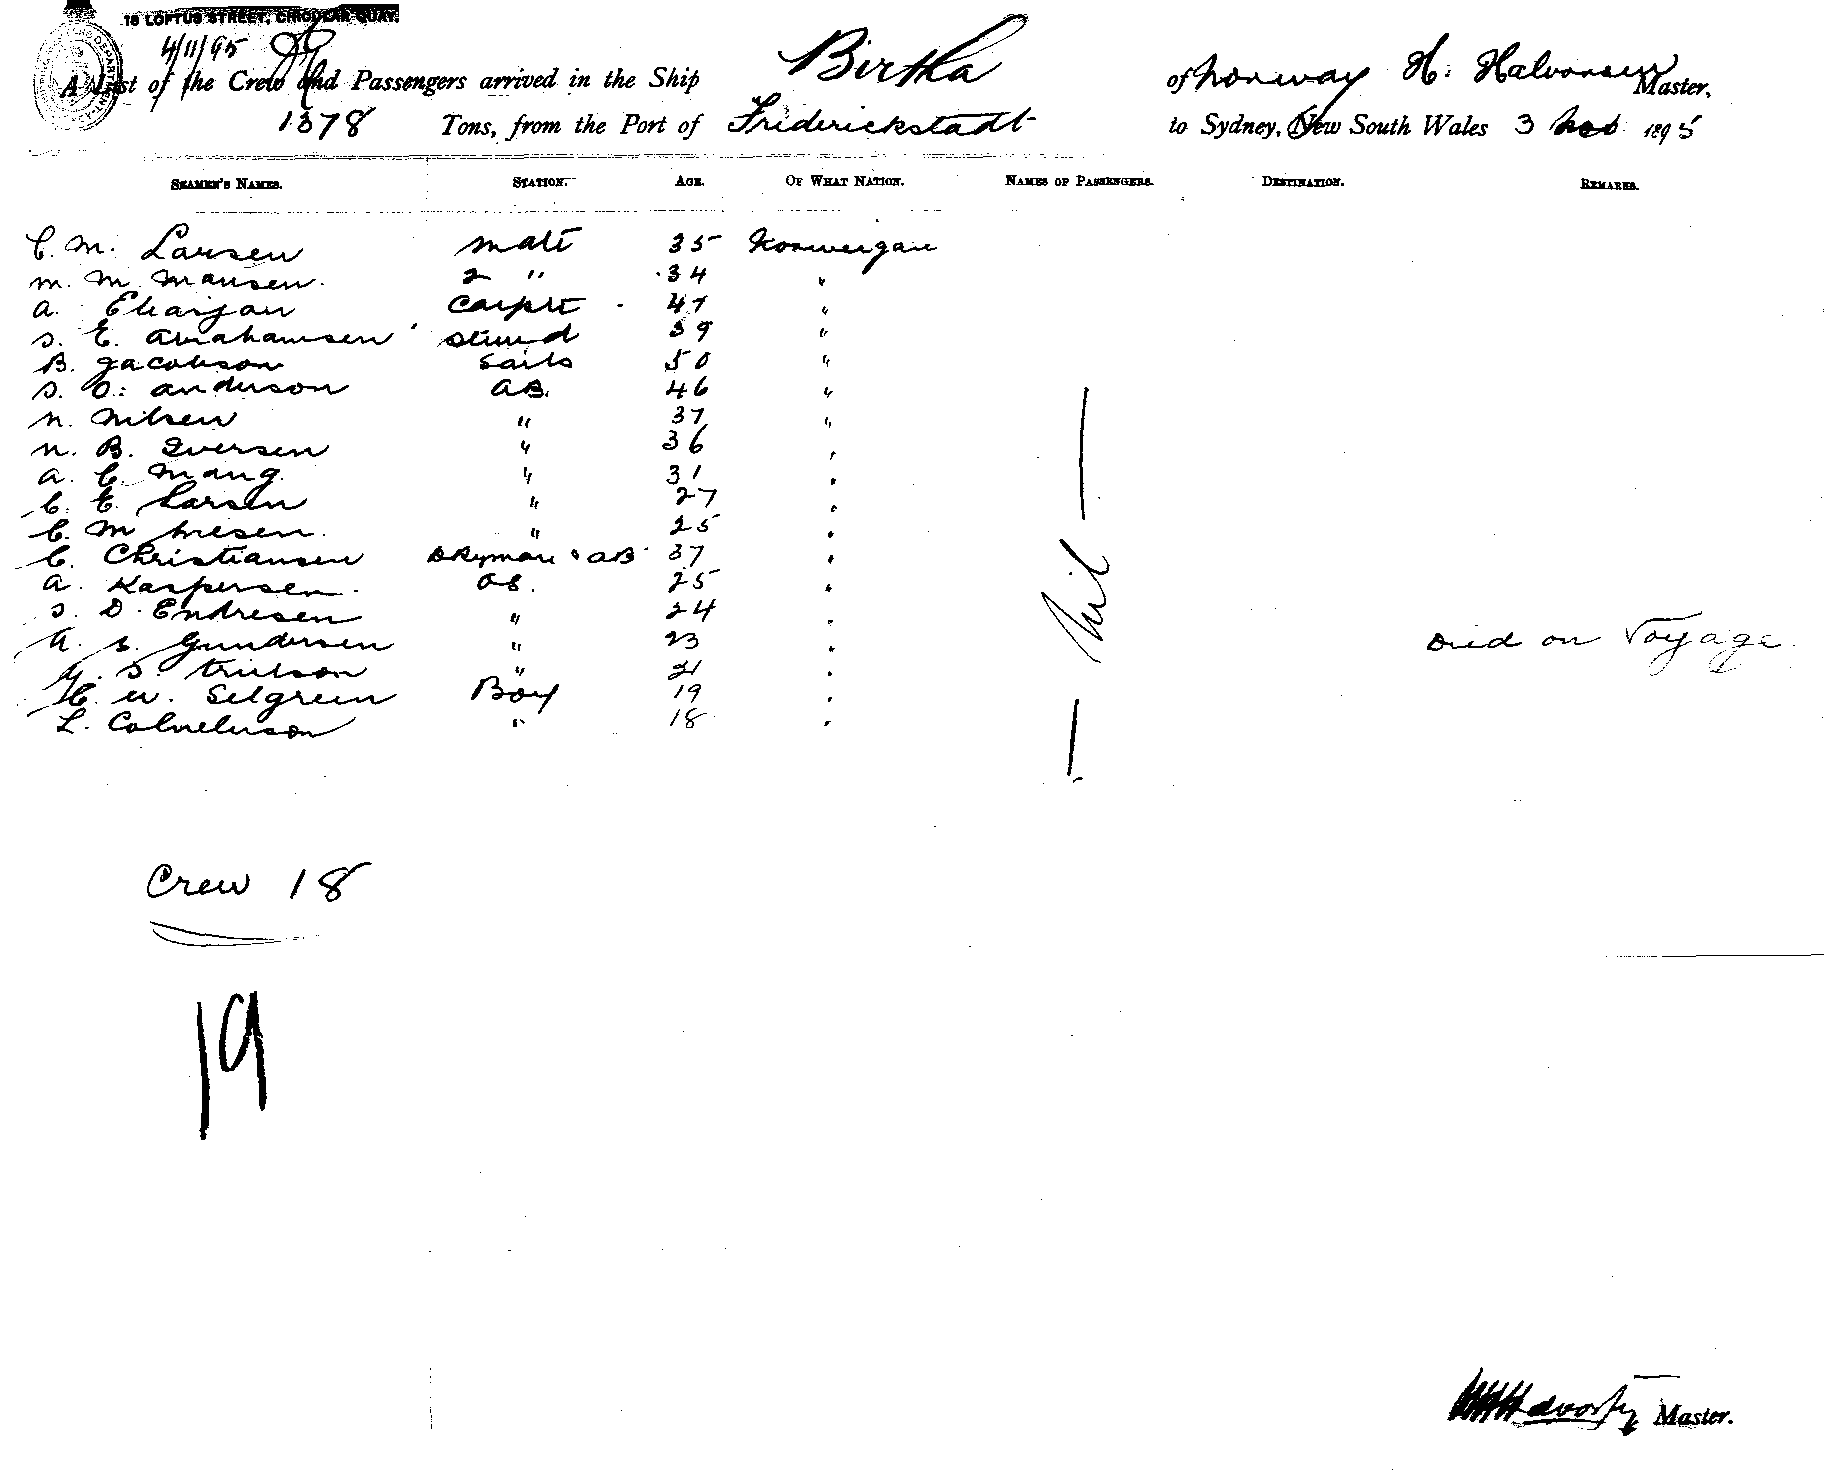 18 LOFTUS STREET, CIRCULAR QUAY.
4/11/95
A List of the Crew and Passengers arrived in the Ship Birtha of Norway H. Halvorsen Master,
1378 Tons, from the Port of Friderickstadt to Sydney, New South Wales 3 Nov 1895
SEAMEN'S NAMES. STATION. AGE. OF WHAT NATION. NAMES OF PASSENGERS. DESTINATION. REMARKS.
C. M. Larsen Mate 35 Norweigan
M. M. Mansen. 2 " 34 "
A. Eliasjan Carpt 47 "
S. E. Abrahamsen Stewd 39 "
B. Jacobson Sails 50 "
S. O. Anderson AB. 46 "
N. Nilsen " 37 "
N. B. Iversen " 36 "
A. C. Mang. " 31 "
C. E. Larsen " 27 "
C. M " 25 "
C. Christiansen & AB 37 "
A. Kaspersen. OS. 25 "
S. D. Endresen " 24 "
A. S. Gundersen " 23 " Died on Voyage.
S. " 21 "
C. W. Selgreen Boy 19 "
L. Calneluson " 18 "
— Nil —
Crew 18
19
Master.